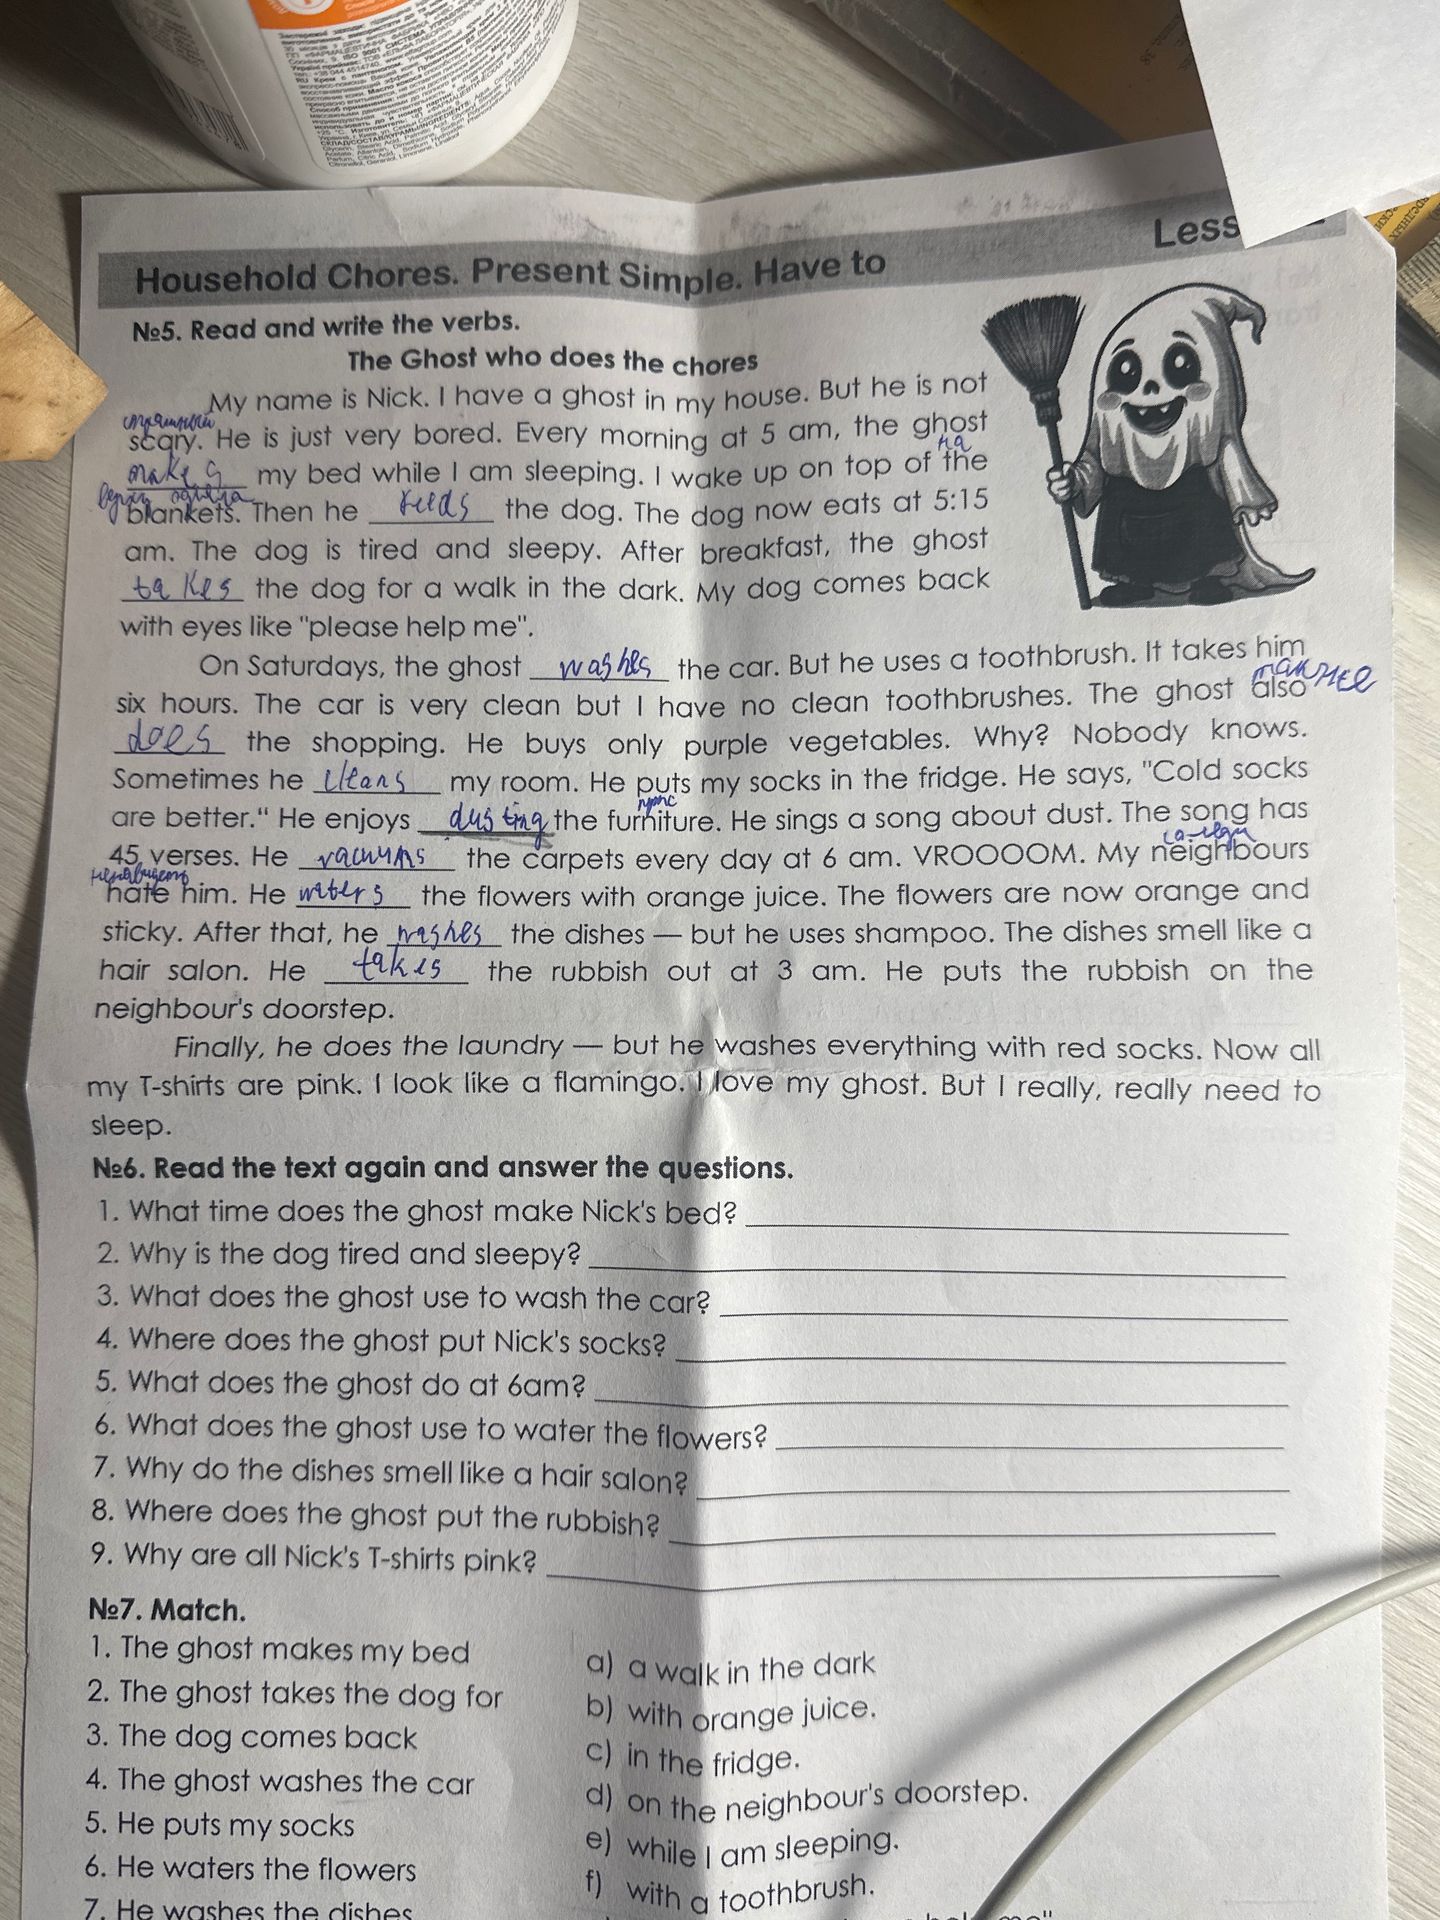 Household Chores. Present Simple. Have to
Less
№5. Read and write the verbs.
The Ghost who does the chores
My name is Nick. I have a ghost in my house. But he is not
страшный
scary. He is just very bored. Every morning at 5 am, the ghost
на
makes my bed while I am sleeping. I wake up on top of the
blankets. Then he feeds the dog. The dog now eats at 5:15
am. The dog is tired and sleepy. After breakfast, the ghost
takes the dog for a walk in the dark. My dog comes back
with eyes like "please help me".
On Saturdays, the ghost washes the car. But he uses a toothbrush. It takes him
также
six hours. The car is very clean but I have no clean toothbrushes. The ghost also
does the shopping. He buys only purple vegetables. Why? Nobody knows.
Sometimes he cleans my room. He puts my socks in the fridge. He says, "Cold socks
are better." He enjoys dusting the furniture. He sings a song about dust. The song has
45 verses. He vacuums the carpets every day at 6 am. VROOOOM. My neighbours
ненавидеть
hate him. He waters the flowers with orange juice. The flowers are now orange and
sticky. After that, he washes the dishes — but he uses shampoo. The dishes smell like a
hair salon. He takes the rubbish out at 3 am. He puts the rubbish on the
neighbour's doorstep.
Finally, he does the laundry — but he washes everything with red socks. Now all
my T-shirts are pink. I look like a flamingo. I love my ghost. But I really, really need to
sleep.
№6. Read the text again and answer the questions.
1. What time does the ghost make Nick's bed?
2. Why is the dog tired and sleepy?
3. What does the ghost use to wash the car?
4. Where does the ghost put Nick's socks?
5. What does the ghost do at 6am?
6. What does the ghost use to water the flowers?
7. Why do the dishes smell like a hair salon?
8. Where does the ghost put the rubbish?
9. Why are all Nick's T-shirts pink?
№7. Match.
1. The ghost makes my bed
2. The ghost takes the dog for
3. The dog comes back
4. The ghost washes the car
5. He puts my socks
6. He waters the flowers
7. He washes the dishes
a) a walk in the dark
b) with orange juice.
c) in the fridge.
d) on the neighbour's doorstep.
e) while I am sleeping.
f) with a toothbrush.